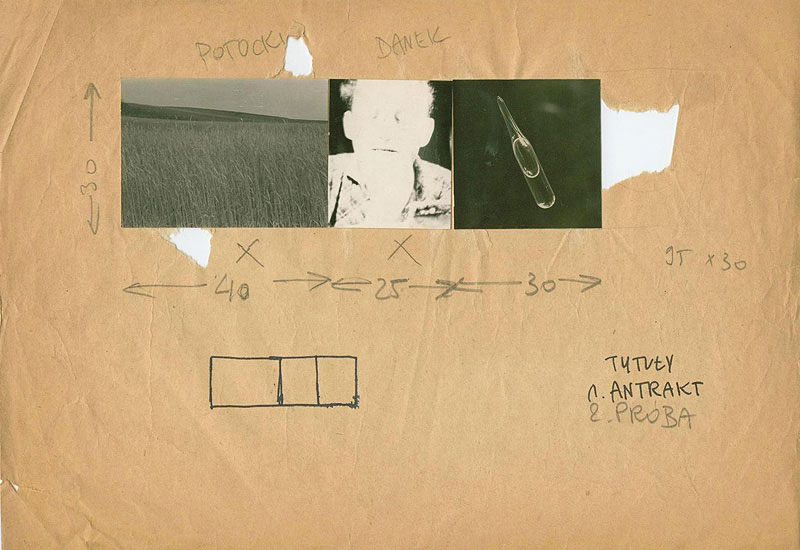 POTOCKI DANEK
30
X X
40 25 30
95 x 30
TYTUŁY
1. ANTRAKT
2. PRÓBA